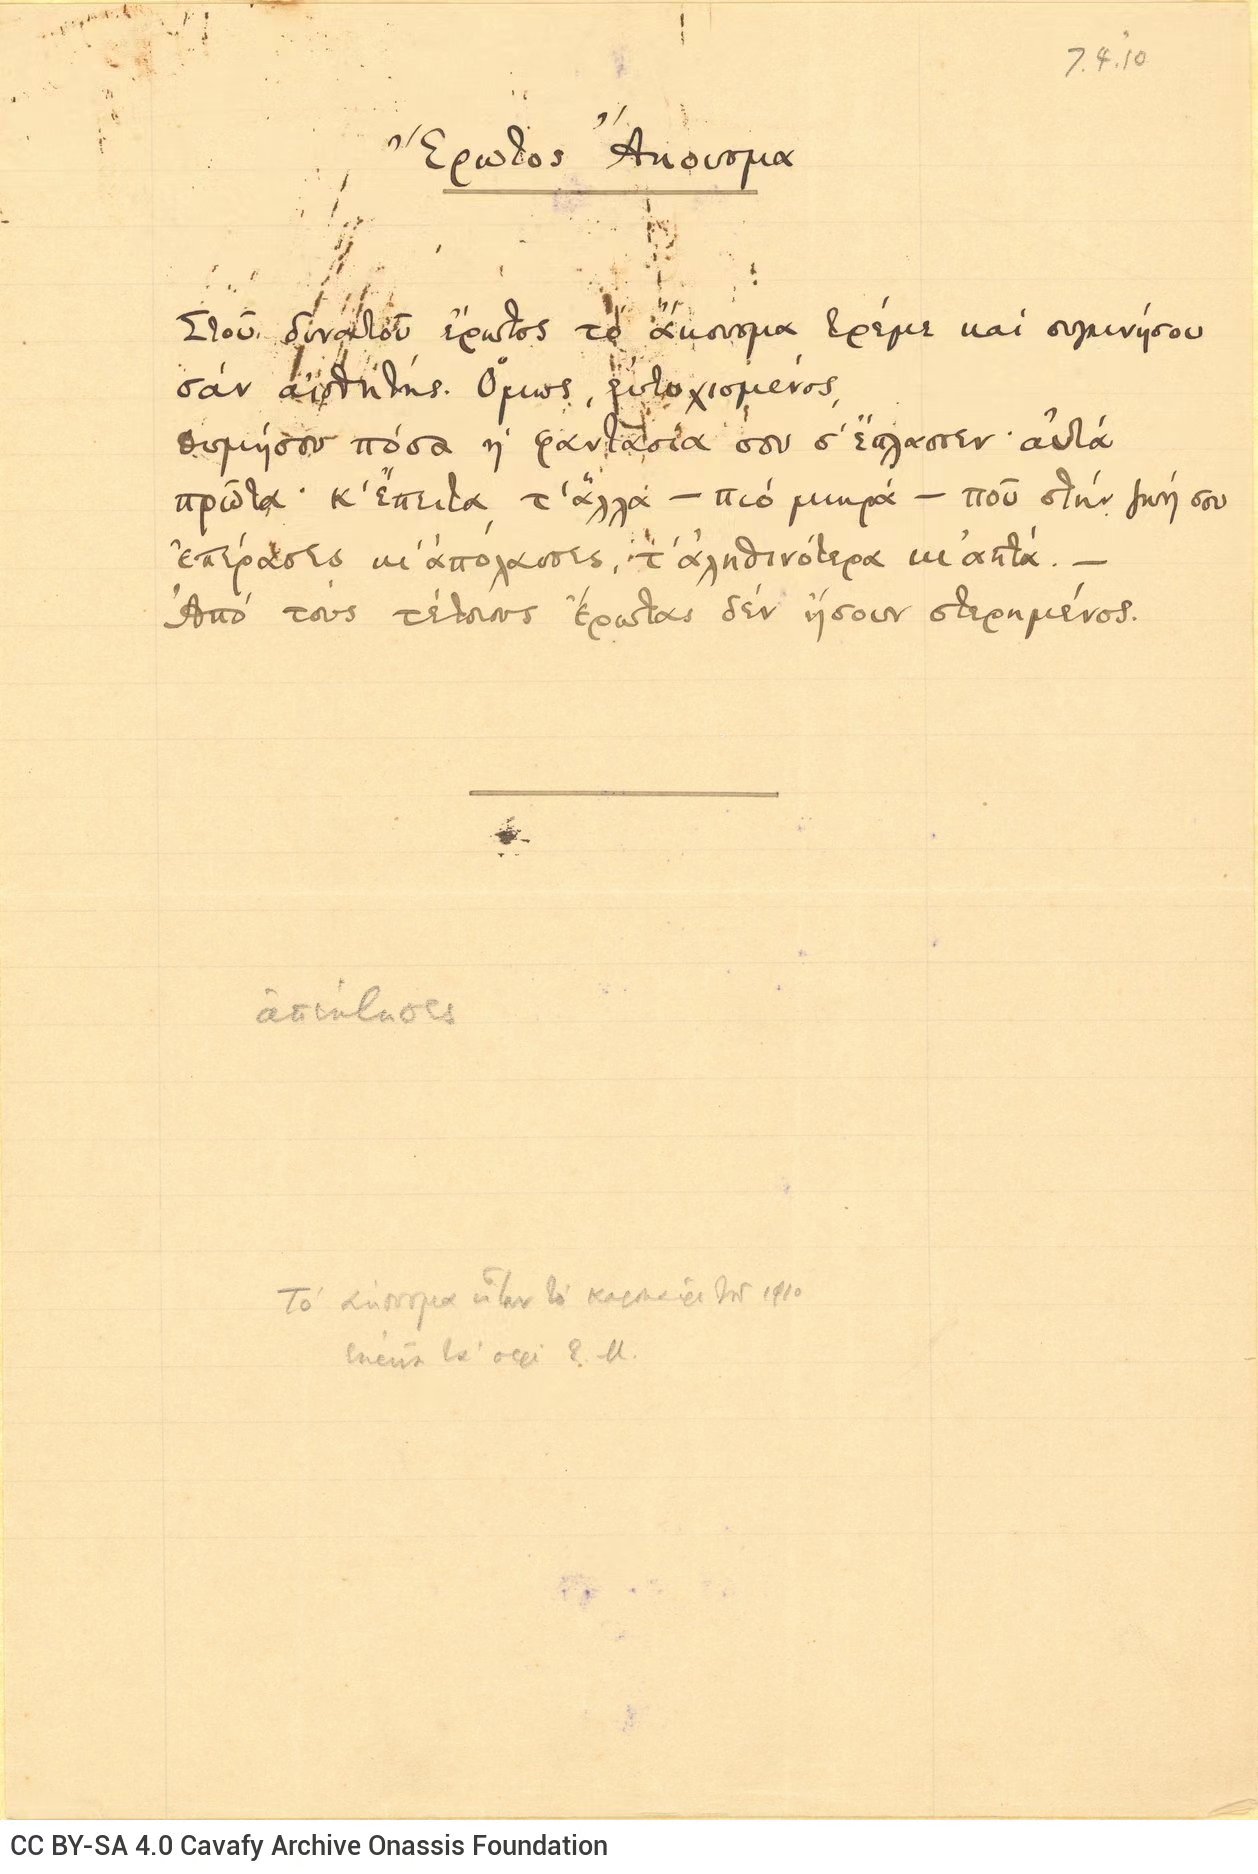 7.4.'10
Ἔρωτος Ἄκουσμα
Στοῦ δυνατοῦ ἔρωτος τό ἄκουσμα τρέμε καί συγκινήσου
σάν αἰσθητής. Ὅμως, εὐτυχισμένος,
θυμήσου πόσα ἡ φαντασία σου σ' ἔπλασσεν· αὐτά
πρῶτα· κ' ἔπειτα τ' ἄλλα — πιό μικρά — πού στήν ζωή σου
ἐπέρασες κι' ἀπόλαυσες, τ' ἀληθινότερα κι' ἁπτά. —
Ἀπό τούς τέτοιους ἔρωτας δέν ἤσουν στερημένος.
ἀπέκτησες
Τό ἄκουσμα ἦταν τό 1910
Ε. Μ.
CC BY-SA 4.0 Cavafy Archive Onassis Foundation